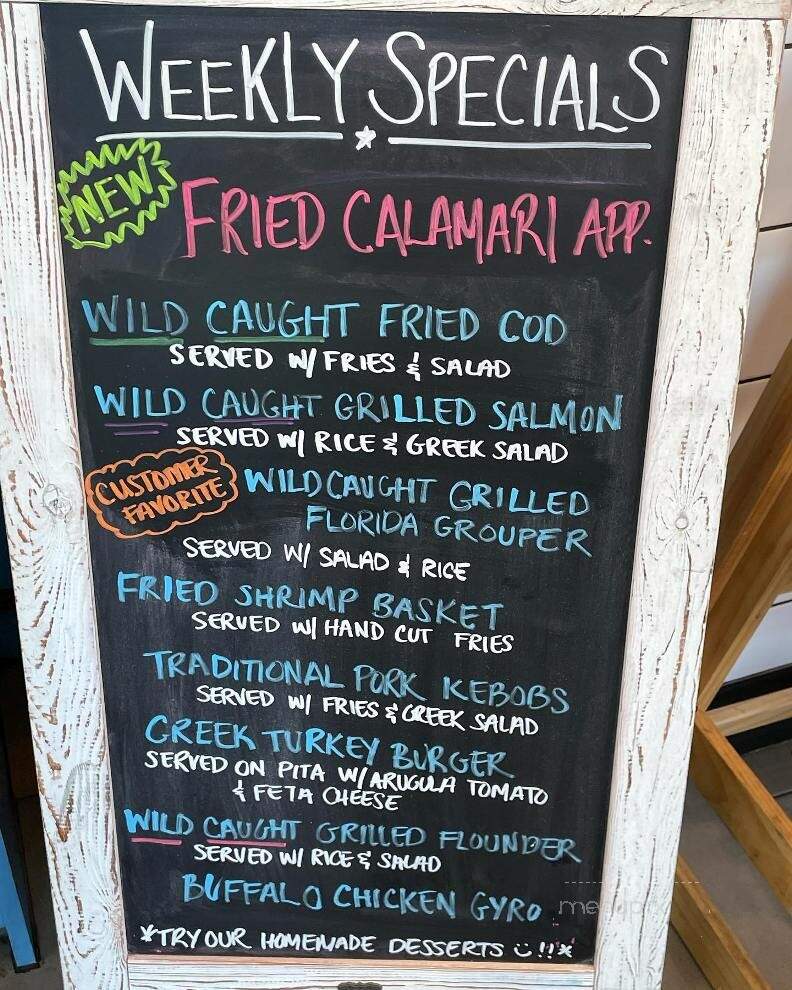 WEEKLY SPECIALS
NEW
FRIED CALAMARI APP.
WILD CAUGHT FRIED COD
SERVED W/ FRIES & SALAD
WILD CAUGHT GRILLED SALMON
SERVED W/ RICE & GREEK SALAD
CUSTOMER
FAVORITE
WILD CAUGHT GRILLED
FLORIDA GROUPER
SERVED W/ SALAD & RICE
FRIED SHRIMP BASKET
SERVED W/ HAND CUT FRIES
TRADITIONAL PORK KEBOBS
SERVED W/ FRIES & GREEK SALAD
GREEK TURKEY BURGER
SERVED ON PITA W/ ARUGULA TOMATO
& FETA CHEESE
WILD CAUGHT GRILLED FLOUNDER
SERVED W/ RICE & SALAD
BUFFALO CHICKEN GYRO
*TRY OUR HOMEMADE DESSERTS ☺!!*